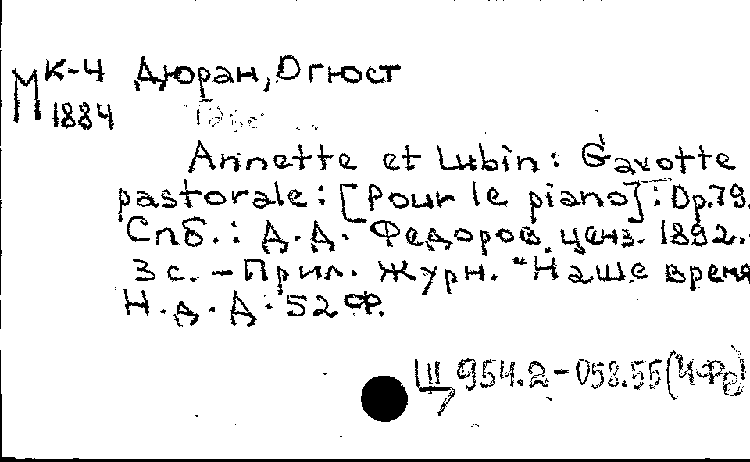 К-4 Дюран, Огюст
М 1884
Annette et Lubin: Gavotte
pastorale: [Pour le piano]: Op.79.
Спб.: Д.Д. Федоров, ценз. 1892.
3 с. – Прил. журн. "Наше время
Н.д.Д. 52 Ф.
Щ 954.2-058.55(4Фр)